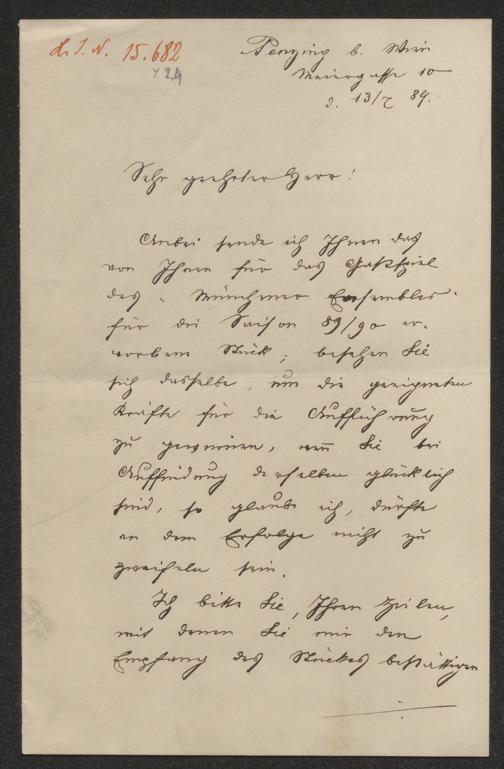 H. I. N. 15.682
424
Penzing b. Wien
Meiergasse 10
d. 13/7 89.
Sehr geehrter Herr!
Anbei sende ich Ihnen das
von Ihnen für das Gastspiel
des „Münchner Ensembles"
für die Saison 89/90 er-
worbene Stück; besehen Sie
sich dasselbe, um die geeigneten
Kräfte für die Aufführung
zu gewinnen, wenn Sie bei
Auffindung derselben glücklich
sind, so glaube ich, dürfte
an dem Erfolge nicht zu
zweifeln sein.
Ich bitte Sie, Ihren Zeilen,
mit denen Sie mir den
Empfang des Stückes bestättigen